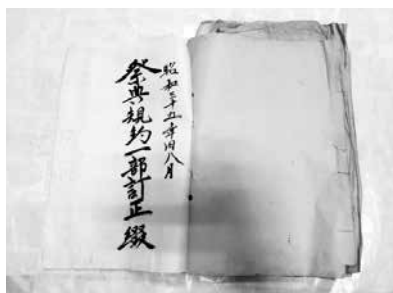 昭和三十五年旧八月
祭典規約一部訂正綴